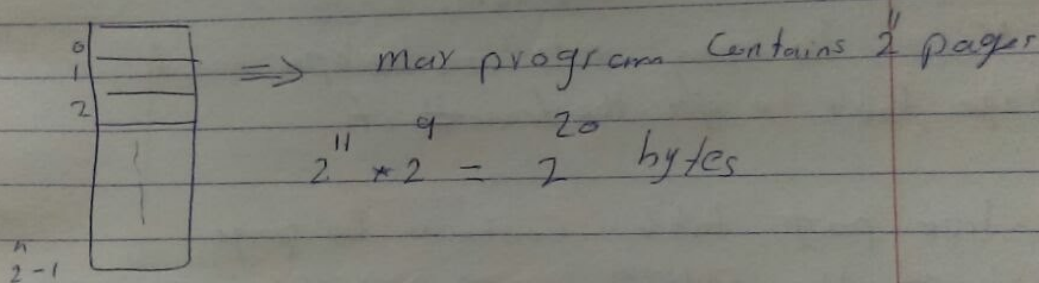 0
1
2
=> max program Contains 2^11 pages
2^11 * 2^9 = 2^20 bytes
2^11-1